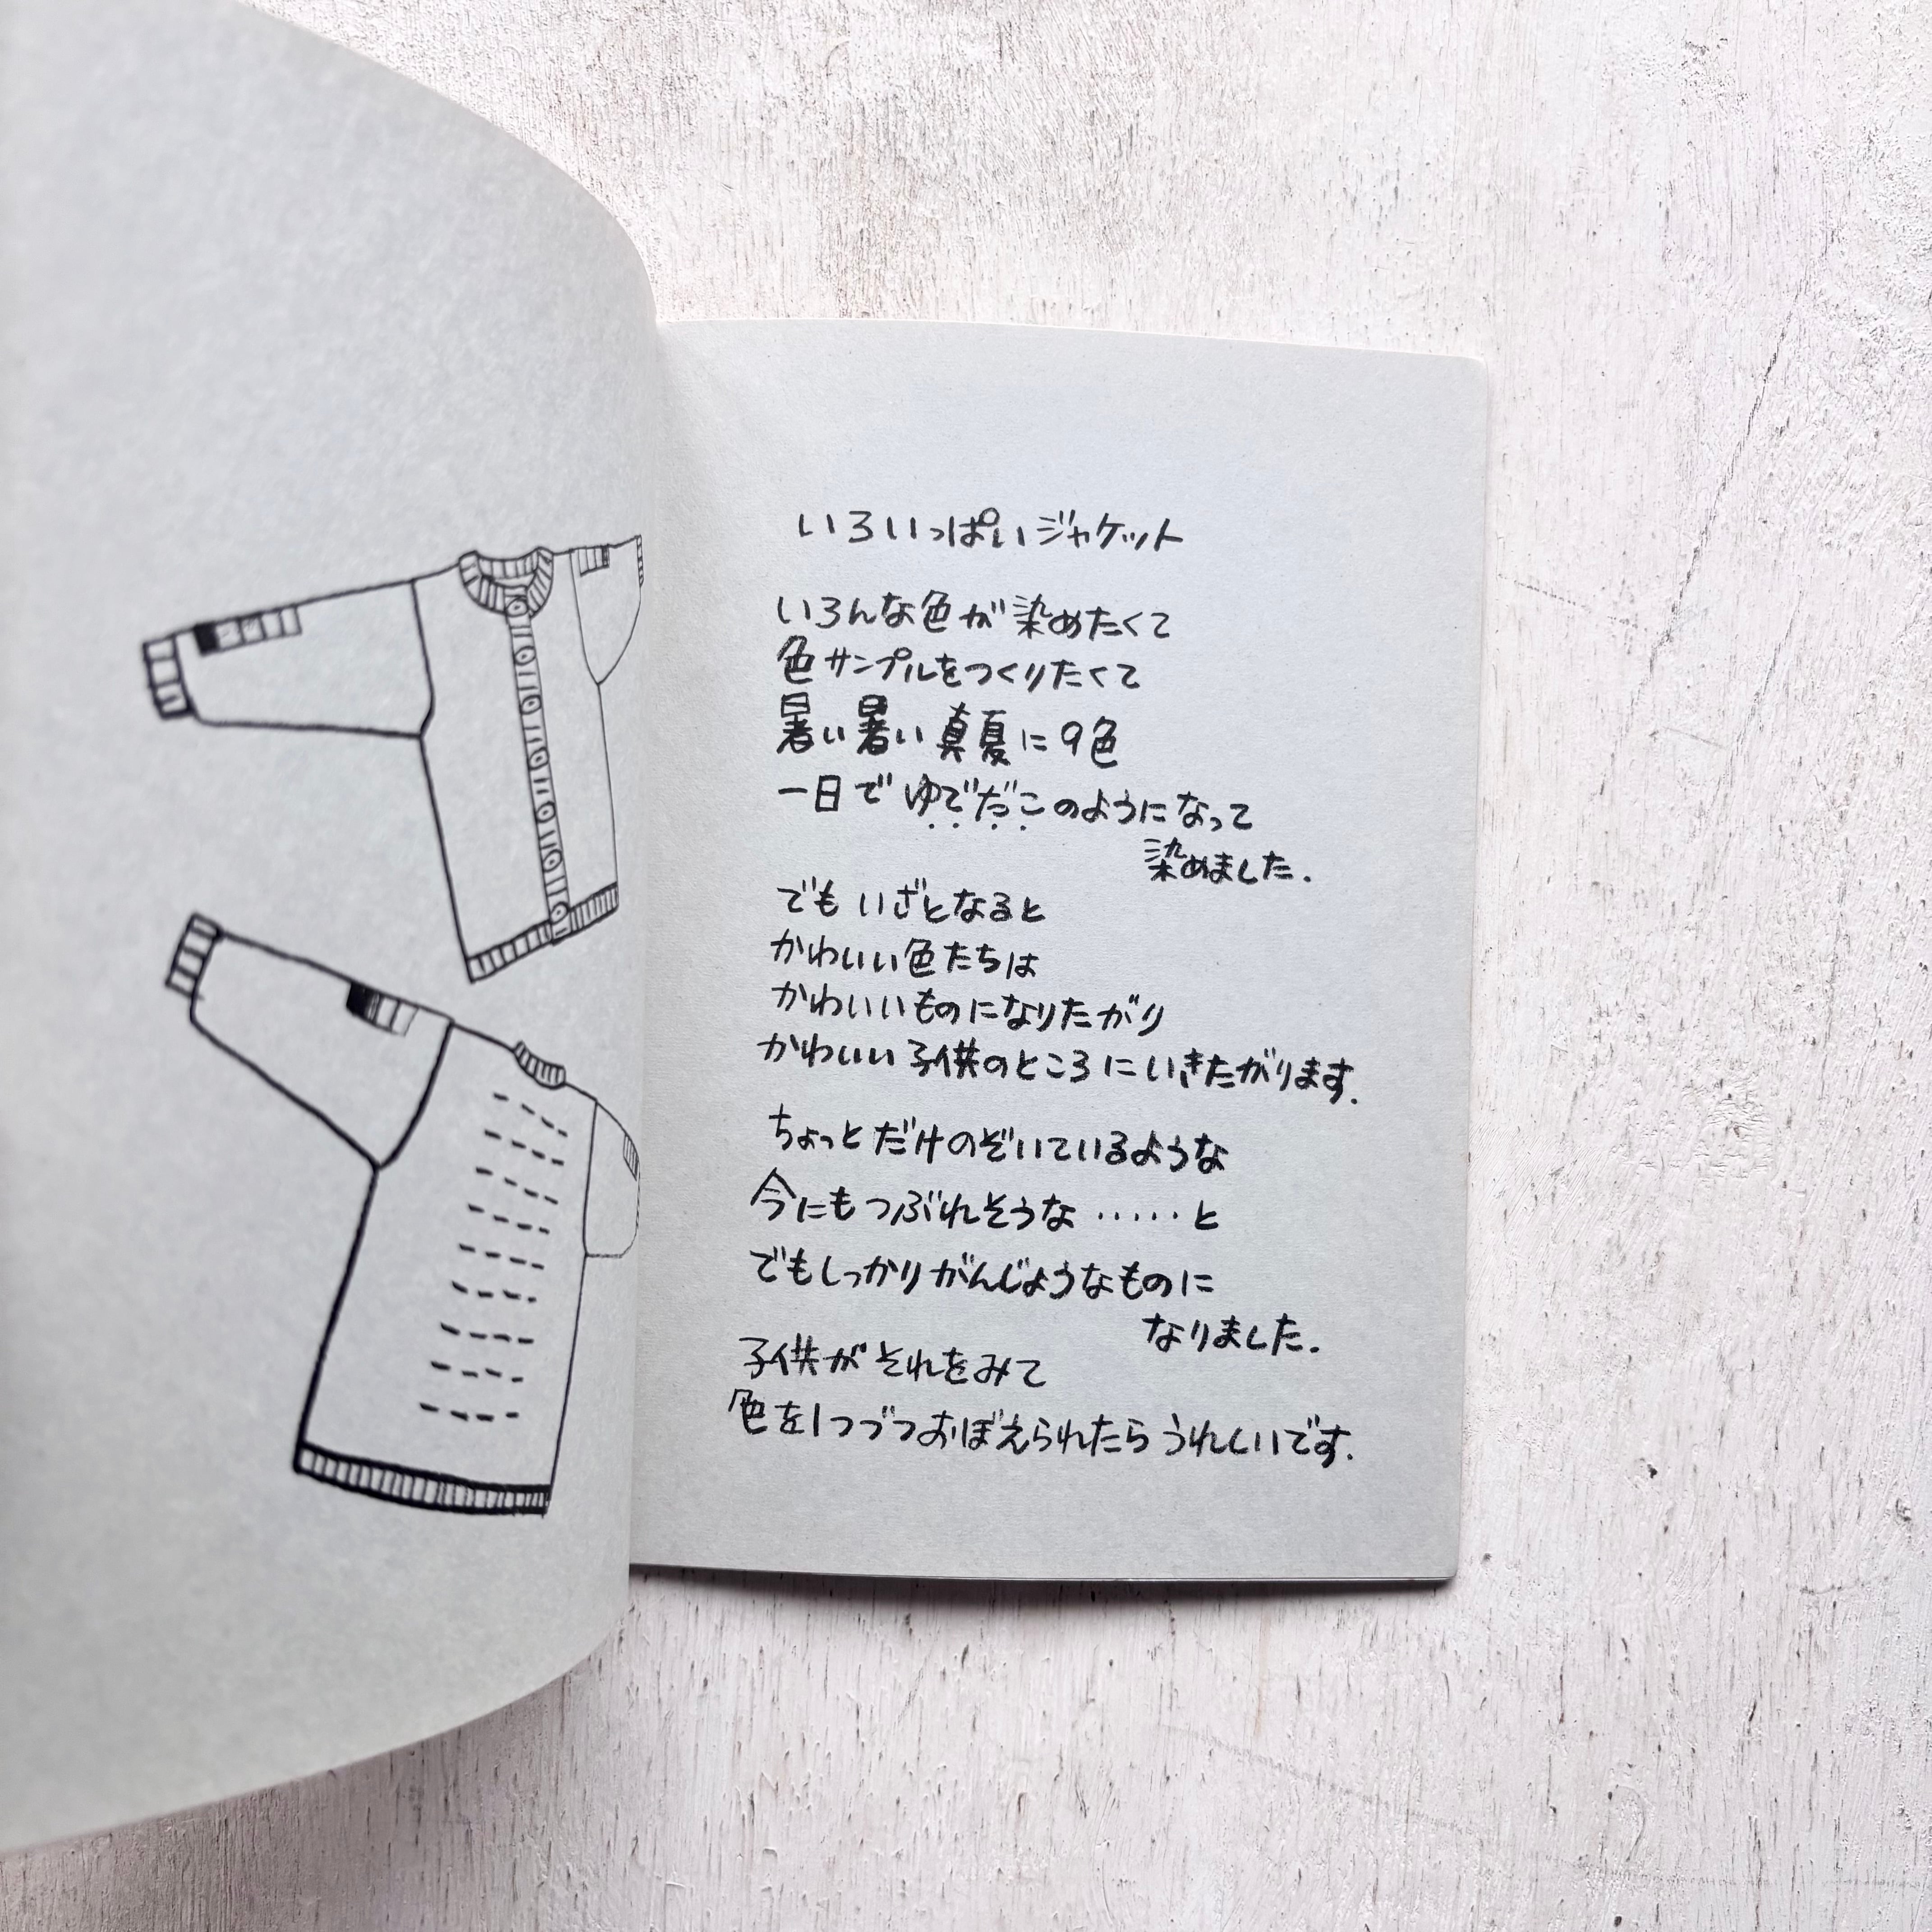 いろいっぱいジャケット
いろんな色が染めたくて
色サンプルをつくりたくて
暑い暑い真夏に9色
一日でゆでだこのようになって
染めました.
でもいざとなると
かわいい色たちは
かわいいものになりたがり
かわいい子供のところにいきたがります.
ちょっとだけのぞいているような
今にもつぶれそうな・・・・・と
でもしっかりがんじょうなものに
なりました.
子供がそれをみて
色を1つづつおぼえられたらうれしいです.